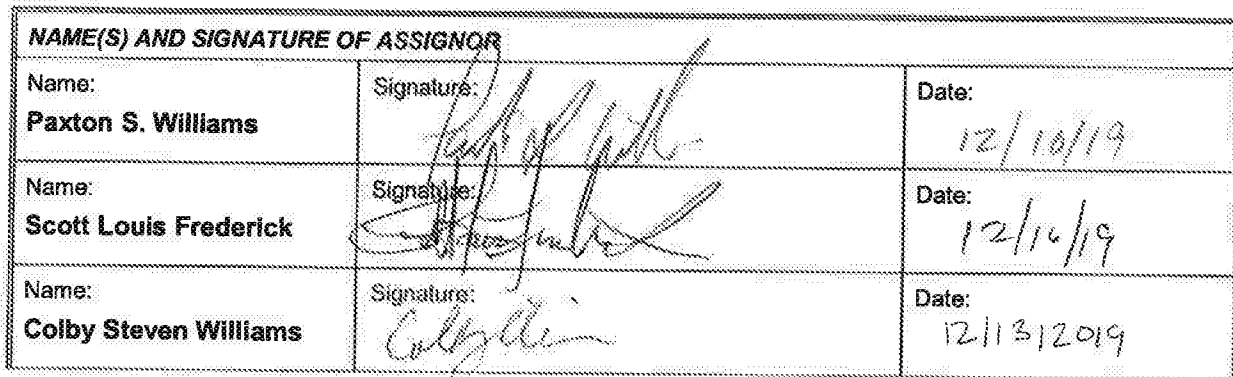 NAME(S) AND SIGNATURE OF ASSIGNOR
Name:
Paxton S. Williams
Signature:
Date:
12/10/19
Name:
Scott Louis Frederick
Signature:
Date:
12/16/19
Name:
Colby Steven Williams
Signature:
Date:
12/13/2019